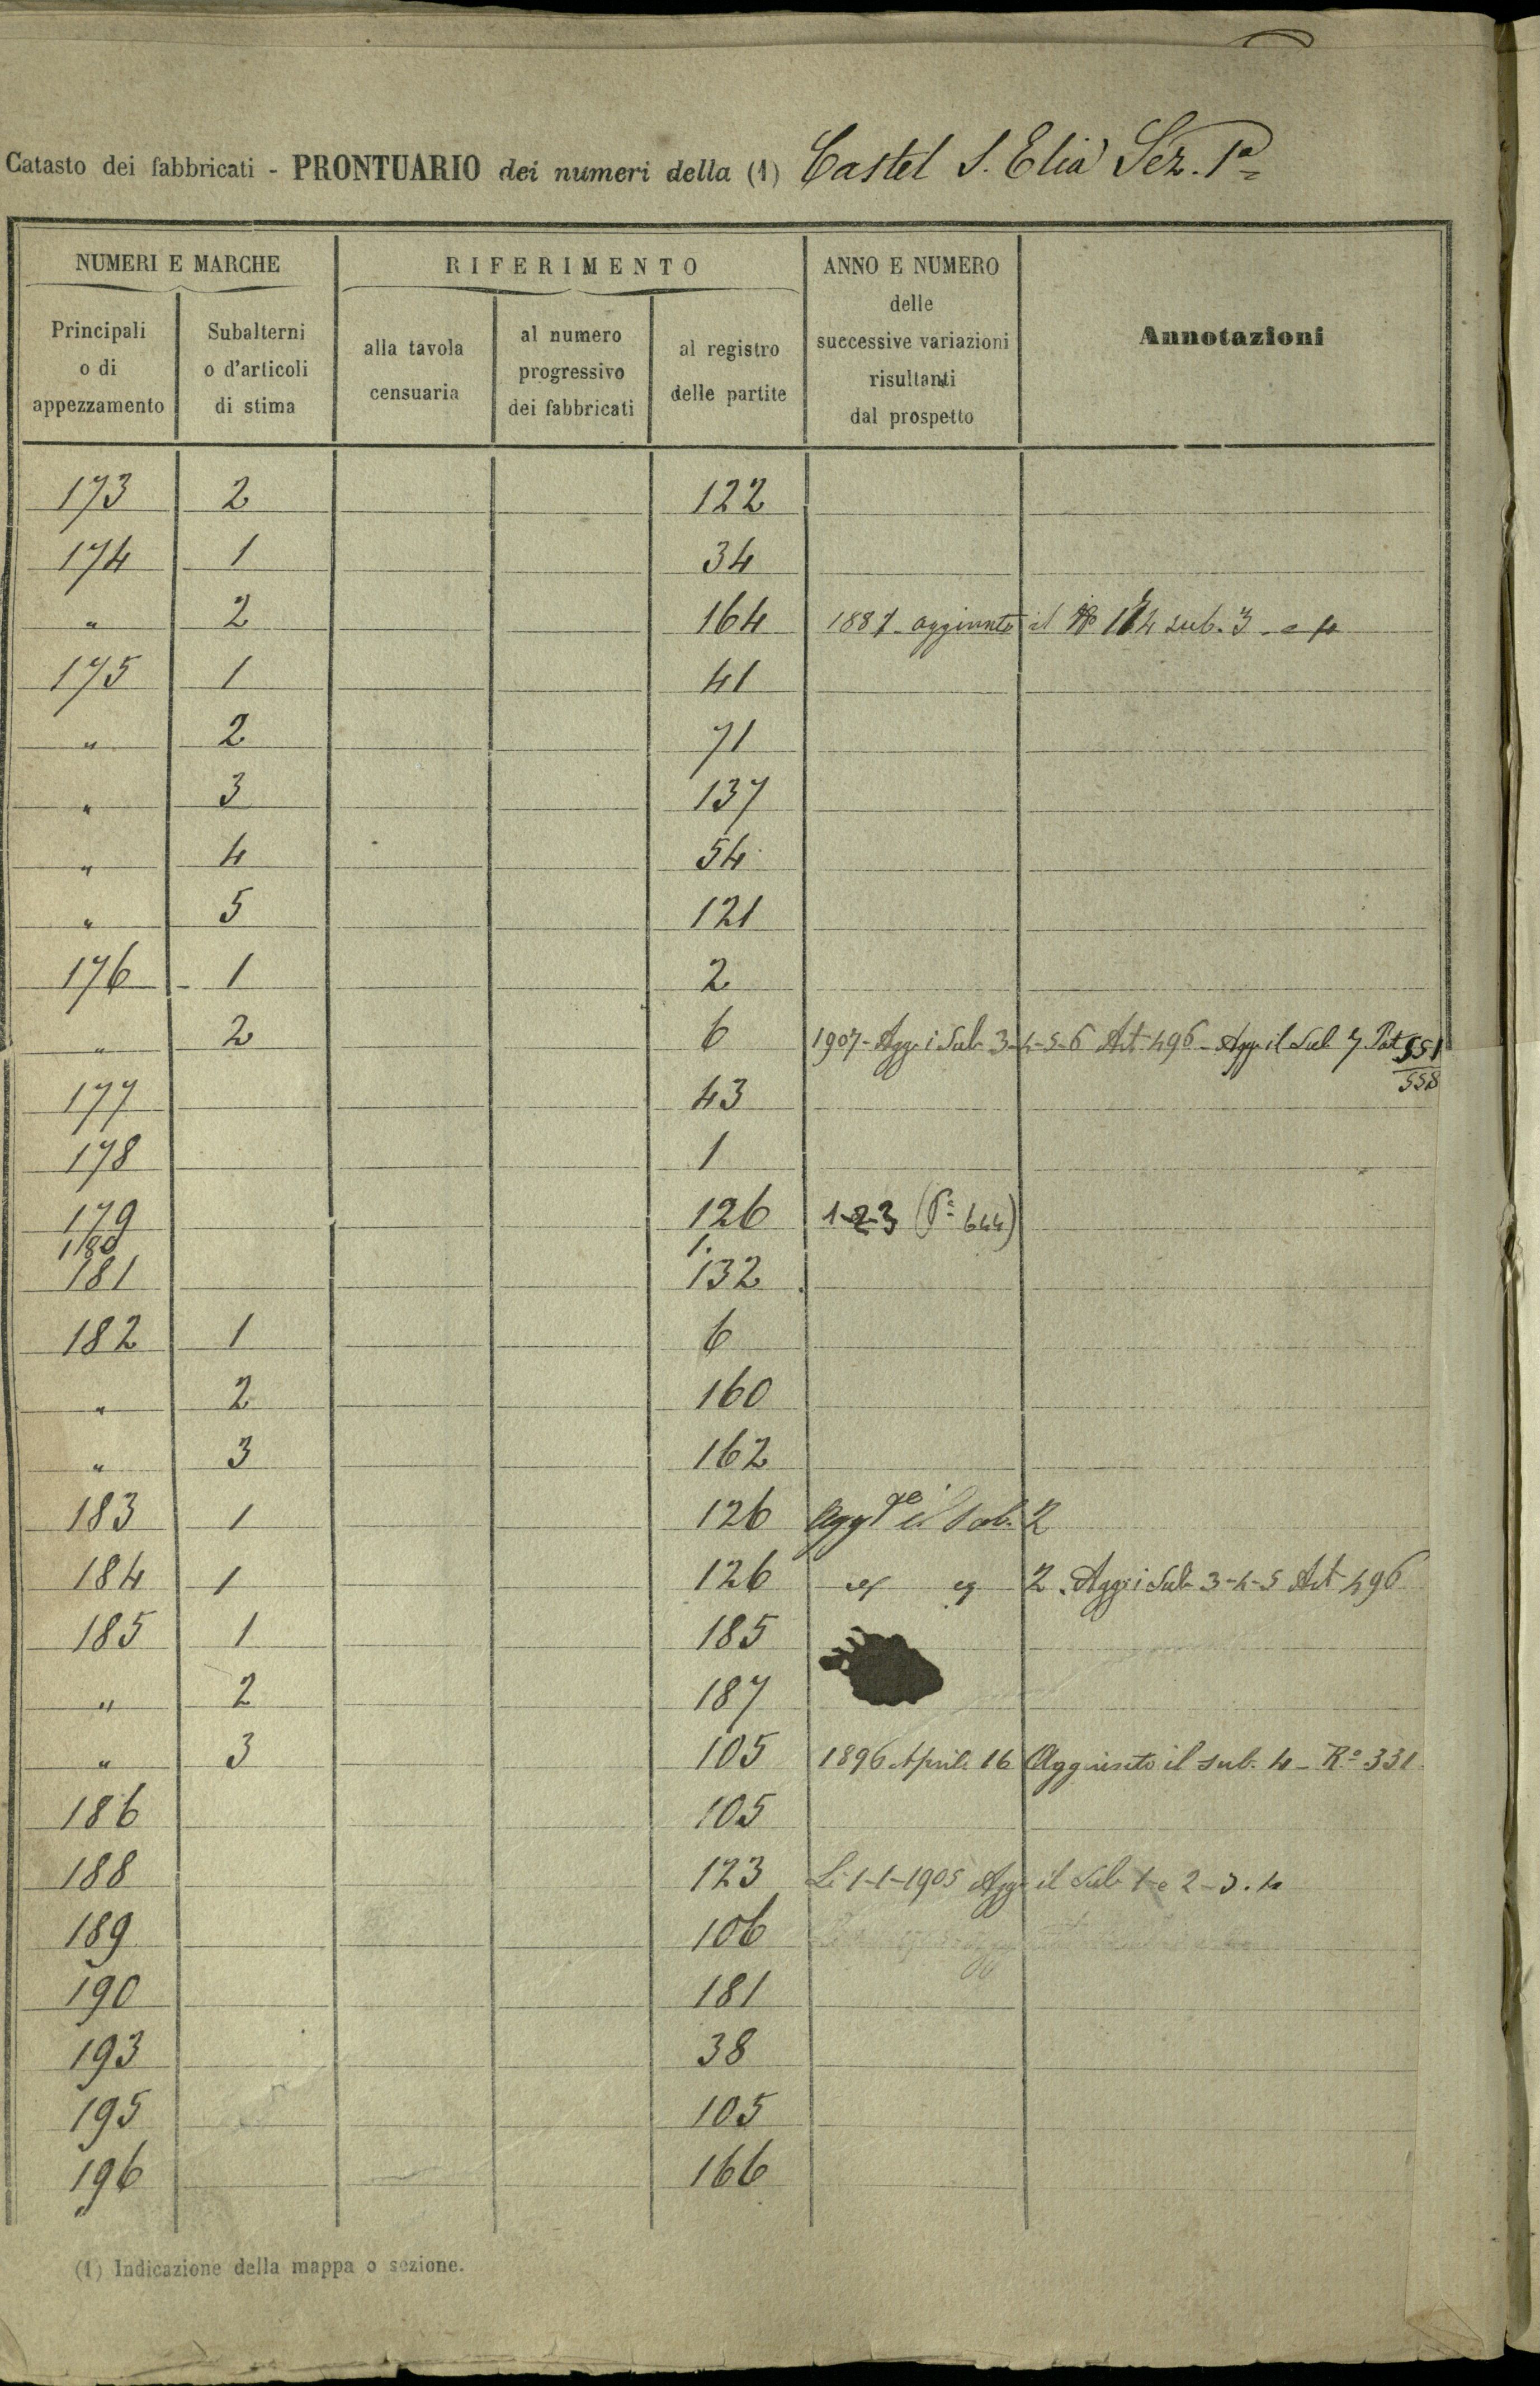 Catasto dei fabbricati - PRONTUARIO dei numeri della (1) Castel S. Elia Sez. 1ª
NUMERI E MARCHE
RIFERIMENTO
ANNO E NUMERO
delle
successive variazioni
risultanti
dal prospetto
Annotazioni
Principali
o di
appezzamento
Subalterni
o d'articoli
di stima
alla tavola
censuaria
al numero
progressivo
dei fabbricati
al registro
delle partite
173 2 122
174 1 34
" 2 164 1887 - aggiunto il N° 174 sub. 3 - e 4
175 1 41
" 2 71
" 3 137
" 4 54
" 5 121
176 - 1 2
" 2 6 1907 - Agg. i Sub 3-4-5-6 Art 496 - Agg il Sub 7 Part 551
558
177 43
178 1
179 126 1-2-3 (Pª 644)
180 1.
181 132
182 1 6
" 2 160
" 3 162
183 1 126 Agg il Sub. 2
184 1 126 " " 2. Agg. i Sub 3-4-5 Art 496
185 1 185
" 2 187
" 3 105 1896 Aprile 16 Aggiunto il sub. 4 - Rº 331
186 105
188 123 Li 1-1-1905 Agg il Sub 1 e 2 - 3. 4
189 106
190 181
193 38
195 105
196 166
(1) Indicazione della mappa o sezione.